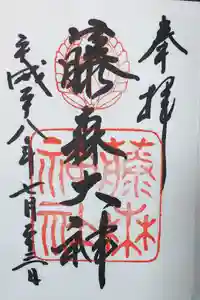 奉拝
藤森大神
平成二十八年七月二十三日
藤森
神社